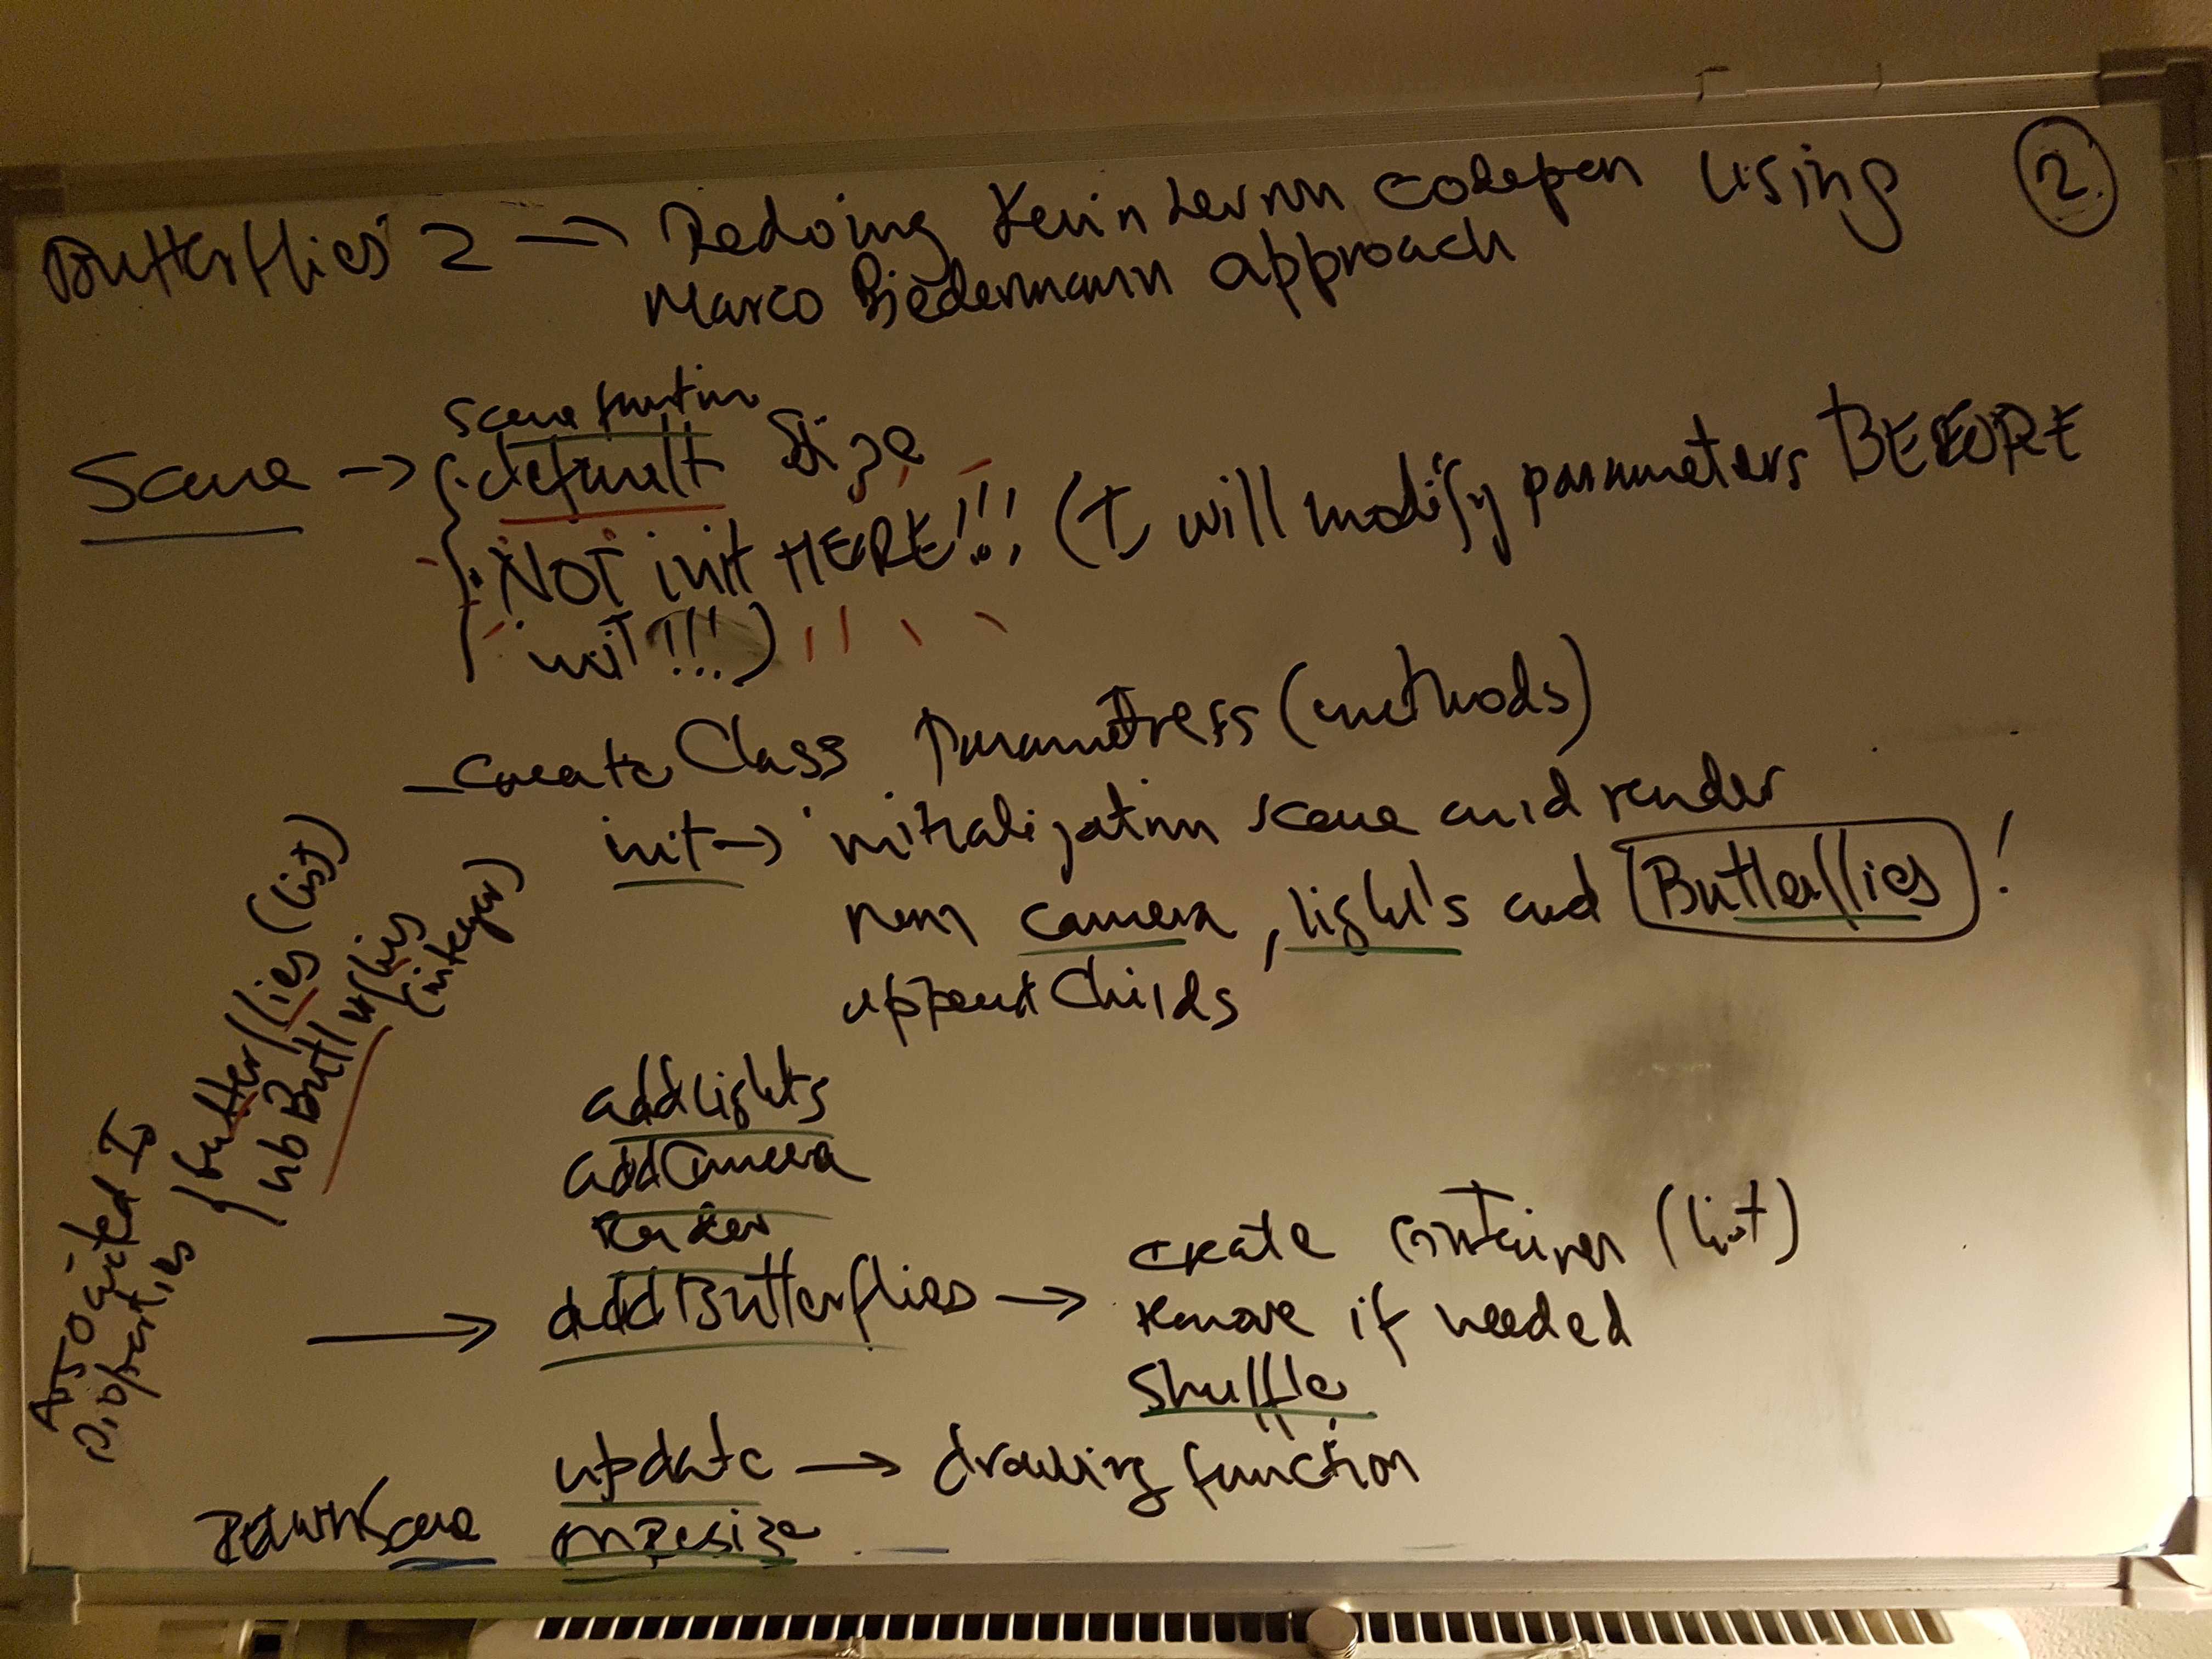 Butterflies 2 → Redoing Kevin Levron codepen using
Marco Biedermann approach
2
Scene → { Scene function
. default size
. NOT init HERE!!! (I will modify parameters BEFORE
init!!!)
- create Class Parametress (methods)
init → initialization scene and render
run camera, light's and Butterflies !
append Childs
addLights
addCamera
Render
→ addButterflies → create container (list)
remove if needed
shuffle
update → drawing function
onResize
Return Scene
Associated IS
properties { butterflies (list)
nbButterflies
(integer)